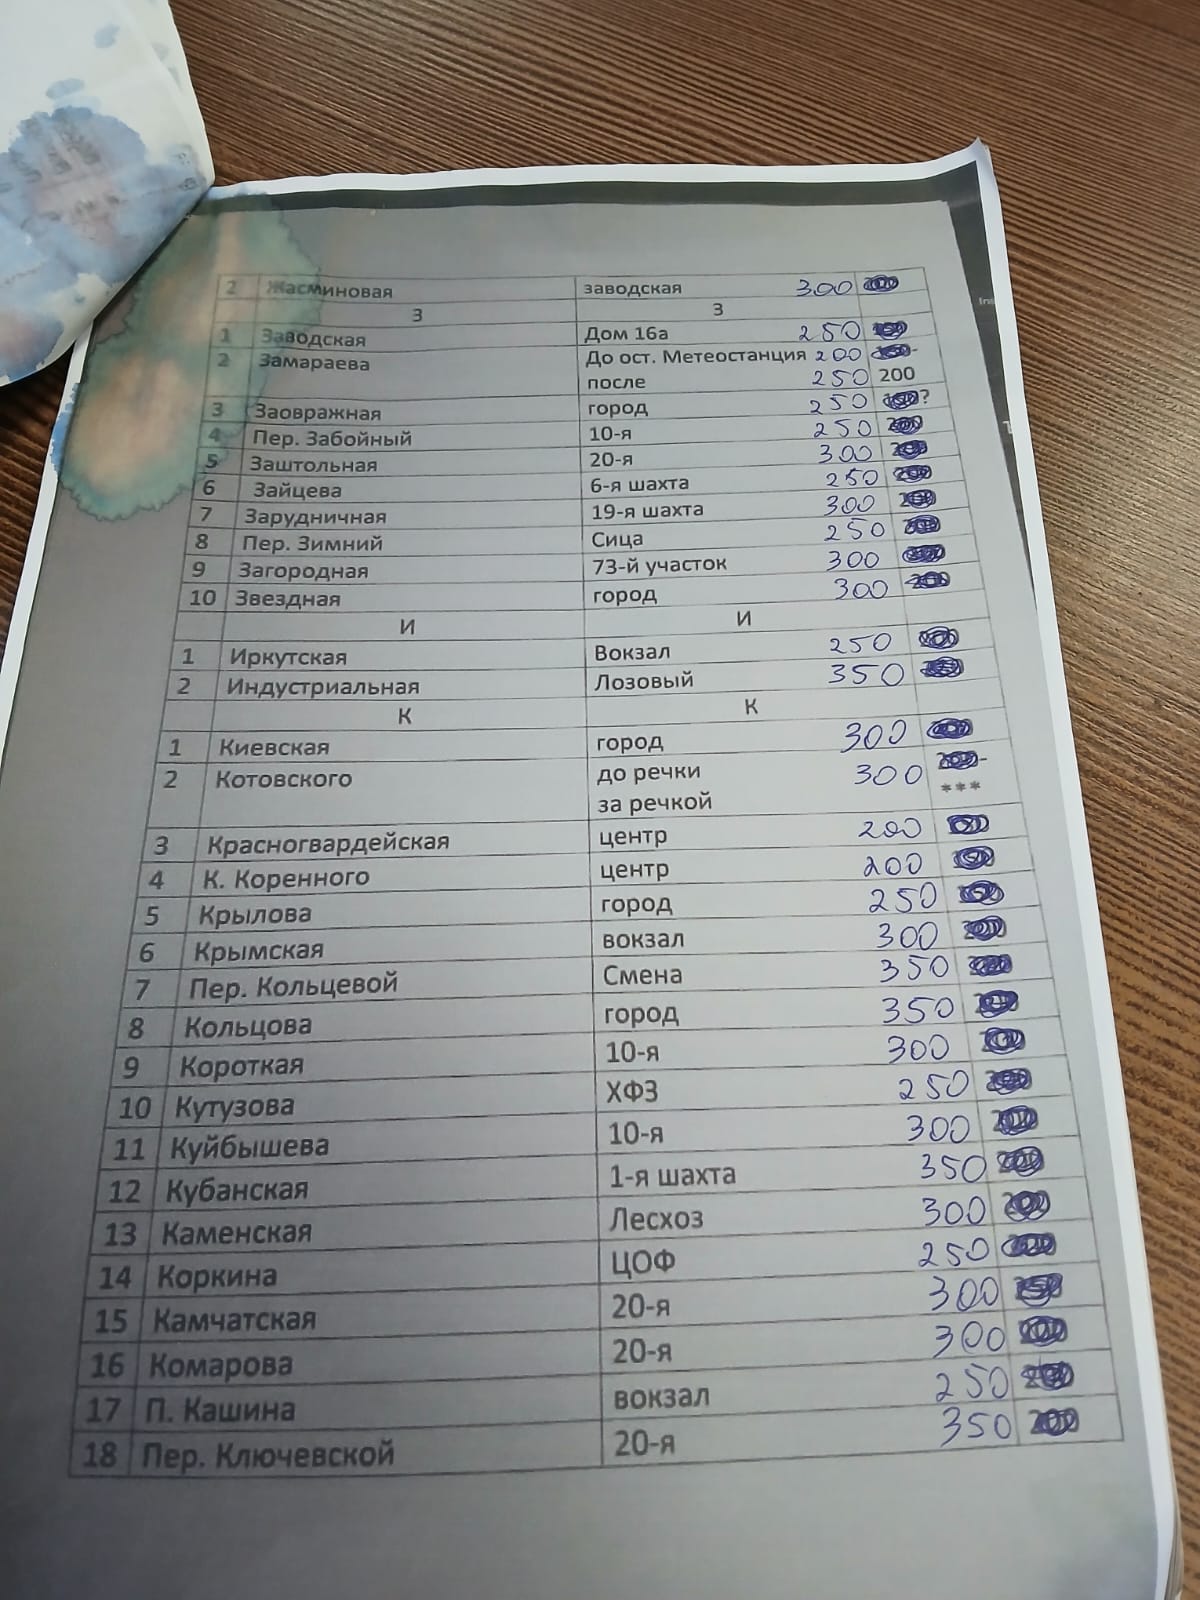 2 Жасминовая заводская 300
З З
1 Заводская Дом 16а 250
2 Замараева До ост. Метеостанция 200
после 250 200
3 Заовражная город 250 ?
4 Пер. Забойный 10-я 250
5 Заштольная 20-я 300
6 Зайцева 6-я шахта 250
7 Зарудничная 19-я шахта 300
8 Пер. Зимний Сица 250
9 Загородная 73-й участок 300
10 Звездная город 300
И И
1 Иркутская Вокзал 250
2 Индустриальная Лозовый 350
К К
1 Киевская город 300
2 Котовского до речки 300
за речкой ***
3 Красногвардейская центр 200
4 К. Коренного центр 200
5 Крылова город 250
6 Крымская вокзал 300
7 Пер. Кольцевой Смена 350
8 Кольцова город 350
9 Короткая 10-я 300
10 Кутузова ХФЗ 250
11 Куйбышева 10-я 300
12 Кубанская 1-я шахта 350
13 Каменская Лесхоз 300
14 Коркина ЦОФ 250
15 Камчатская 20-я 300
16 Комарова 20-я 300
17 П. Кашина вокзал 250
18 Пер. Ключевской 20-я 350 200